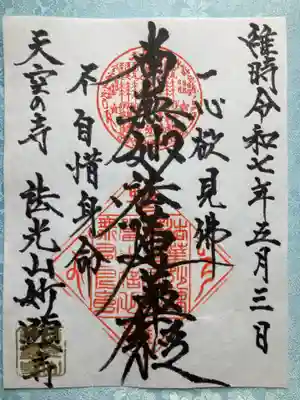 維時令和七年五月三日
一心欲見佛
南無妙法蓮華経
不自惜身命
天空の寺 法光山妙願寺